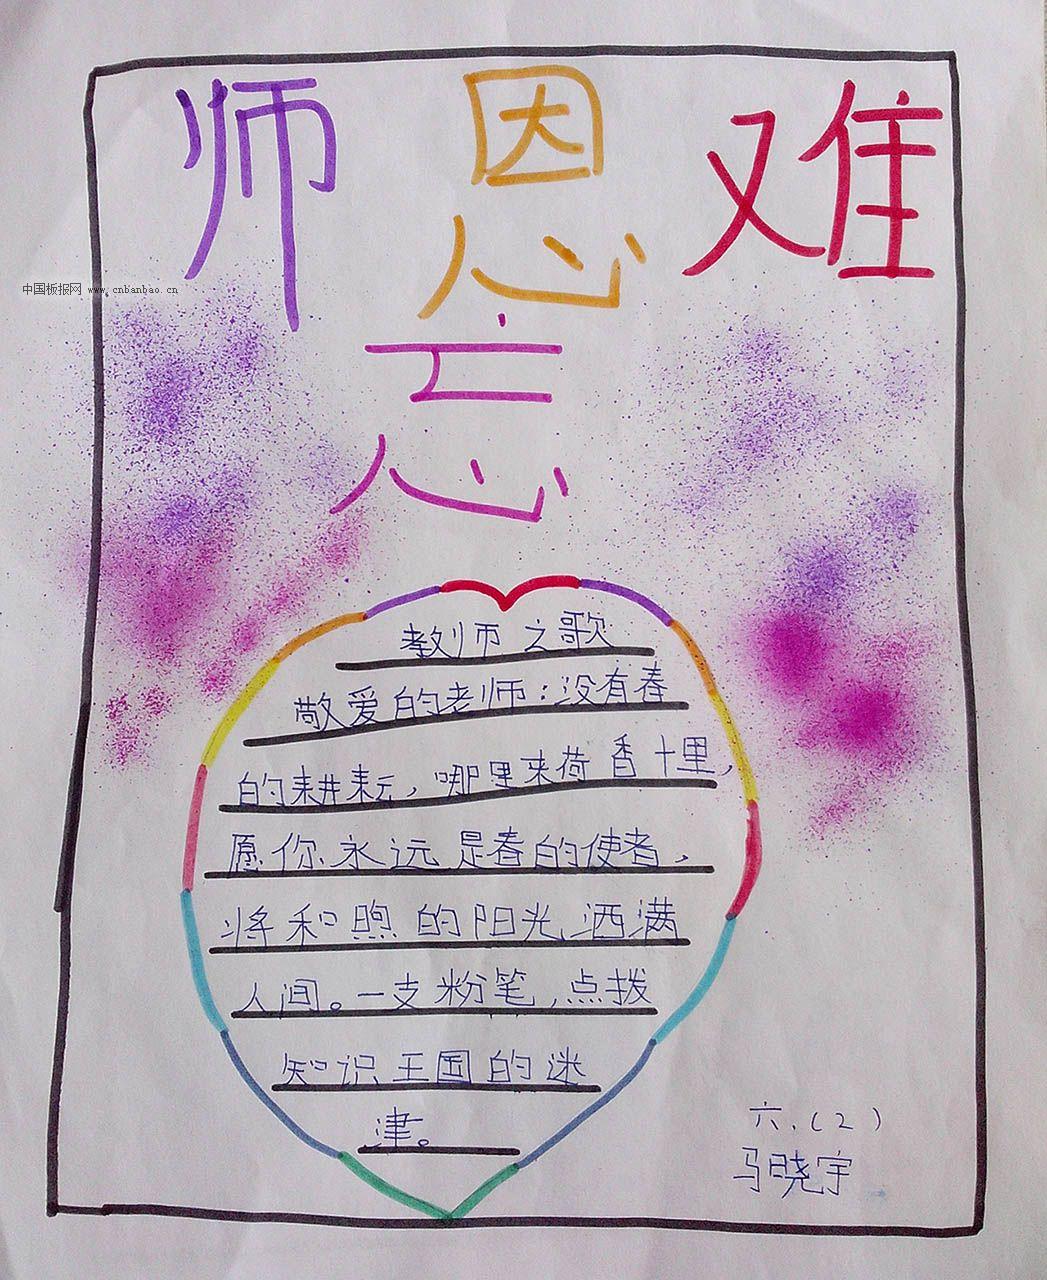 师恩难
忘
中国板报网 www.cnbanbao.cn
教师之歌
敬爱的老师：没有春
的耕耘，哪里来荷香十里，
愿你永远是春的使者，
将和煦的阳光洒满
人间。一支粉笔，点拨
知识王国的迷
津。
六.(2)
马晓宇